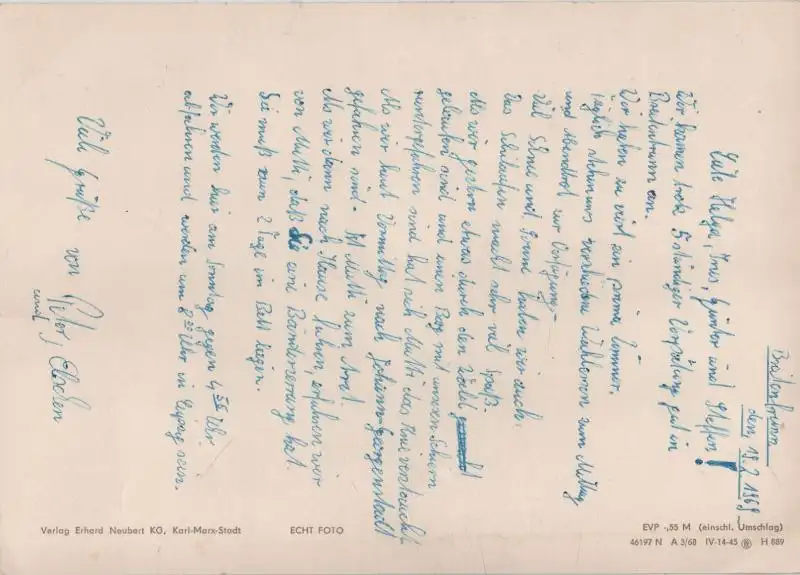 Breitenbrunn
den, 19.2.1969
Liebe Helga, Ines, Günter und Steffen!
Wir kamen trotz 5 stündiger Verspätung gut in
Breitenbrunn an.
Wir haben zu viert ein prima Zimmer.
Täglich stehen uns verschiedene Wahlessen zum Mittag
und Abendbrot zur Verfügung.
Viel Schnee und Sonne haben wir auch.
Das Schilaufen macht sehr viel Spaß.
Als wir gestern etwas durch den Wald
gelaufen sind und einen Berg mit unseren Schiern
runtergefahren sind hat sich Mutti das Knie verstaucht.
Als wir heut Vormittag nach Johann-georgenstadt
gefahren sind. Ist Mutti zum Arzt.
Als wir dann nach Hause fuhren, erfuhren wir
von Mutti, daß Sie eine Bänderzerrung hat.
Sie muß nun 2 Tage im Bett liegen.
Wir werden hier am Sonntag gegen 4 Uhr
abfahren und werden um 8 Uhr in Leipzig sein.
Viele Grüße von Peter
und
Verlag Erhard Neubert KG, Karl-Marx-Stadt
ECHT FOTO
EVP -,55 M (einschl. Umschlag)
46197 N A 3/68 IV-14-45 H 889